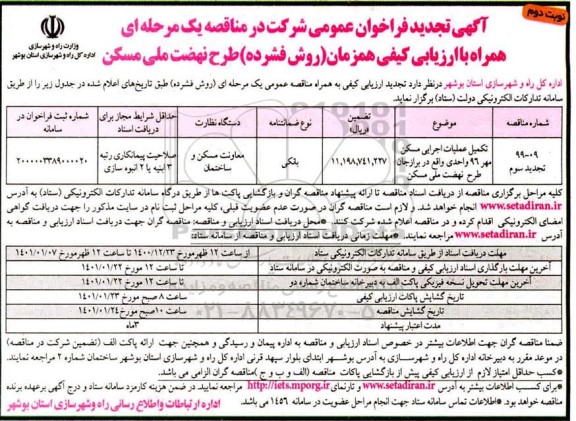 نوبت دوم
آگهی تجدید فراخوان عمومی شرکت در مناقصه یک مرحله ای
همراه با ارزیابی کیفی همزمان (روش فشرده) طرح نهضت ملی مسکن
وزارت راه و شهرسازی
اداره کل راه و شهرسازی استان بوشهر
اداره کل راه و شهرسازی استان بوشهر درنظر دارد تجدید ارزیابی کیفی به همراه مناقصه عمومی یک مرحله ای (روش فشرده) طبق تاریخ‌های اعلام شده در جدول زیر را از طریق
سامانه تدارکات الکترونیکی دولت (ستاد) برگزار نماید.
شماره مناقصه
موضوع
تضمین (ریال)
نوع ضمانتنامه
دستگاه نظارت
حداقل شرایط مجاز برای دریافت اسناد
شماره ثبت فراخوان در سامانه
۹۹-۰۹ تجدید سوم
تکمیل عملیات اجرایی مسکن مهر ۹۶ واحدی واقع در برازجان طرح نهضت ملی مسکن
۱۱,۱۹۸,۷۴۱,۲۲۷
بانکی
معاونت مسکن و ساختمان
صلاحیت پیمانکاری رتبه ۳ ابنیه یا ۲ انبوه سازی
۲۰۰۰۰۰۳۳۸۹۰۰۰۰۲۰
کلیه مراحل برگزاری مناقصه از دریافت اسناد مناقصه تا ارائه پیشنهاد مناقصه گران و بازگشایی پاکت ها از طریق درگاه سامانه تدارکات الکترونیکی (ستاد) به آدرس
www.setadiran.ir انجام خواهد شد. و لازم است مناقصه گران در صورت عدم عضویت قبلی، کلیه مراحل ثبت نام در سایت مذکور را جهت دریافت گواهی
امضای الکترونیکی اقدام کرده و در مناقصه اعلام شده شرکت کنند. *محل دریافت اسناد ارزیابی و مناقصه: مناقصه گران جهت دریافت اسناد ارزیابی و مناقصه به
آدرس www.setadiran.ir مراجعه نمایند. *مهلت زمانی دریافت اسناد ارزیابی و مناقصه از سامانه ستاد:
مهلت دریافت اسناد از طریق سامانه تدارکات الکترونیکی ستاد
از ساعت ۱۲ ظهر مورخ ۱۴۰۰/۱۲/۲۳ تا ساعت ۱۲ ظهر مورخ ۱۴۰۱/۰۱/۰۷
آخرین مهلت بارگذاری اسناد ارزیابی کیفی و مناقصه به صورت الکترونیکی در سامانه ستاد
تا ساعت ۱۲ مورخ ۱۴۰۱/۰۱/۲۲
آخرین مهلت تحویل نسخه فیزیکی پاکت الف به دبیرخانه ساختمان شماره دو
تا ساعت ۱۲ مورخ ۱۴۰۱/۰۱/۲۲
تاریخ گشایش پاکات ارزیابی کیفی
ساعت ۸ صبح مورخ ۱۴۰۱/۰۱/۲۳
تاریخ گشایش مناقصه
ساعت ۱۰ صبح مورخ ۱۴۰۱/۰۱/۲۴
مدت اعتبار پیشنهاد
۳ماه
ضمنا مناقصه گران جهت اطلاعات بیشتر در خصوص اسناد ارزیابی و مناقصه به اداره پیمان و رسیدگی و همچنین جهت ارائه پاکت الف (تضمین شرکت در مناقصه)
در موعد مقرر به دبیرخانه اداره کل راه و شهرسازی به آدرس بوشهر ابتدای بلوار سپهد قرنی اداره کل راه و شهرسازی استان بوشهر ساختمان شماره ۲ مراجعه نمایند.
*کسب حداقل امتیاز لازم از ارزیابی کیفی پیش از بازگشایی پاکات مناقصه (الف و ب و ج) مناقصه گران الزامی می باشد.
*برای کسب اطلاعات بیشتر به آدرس www.setadiran.ir و تارنمای http://iets.mporg.ir مراجعه نمایید در ضمن هزینه کارمزد سامانه ستاد و درج آگهی برعهده برنده
مناقصه خواهد بود. *اطلاعات تماس سامانه ستاد جهت انجام مراحل عضویت در سامانه ۱۴۵۶ می باشد.
اداره ارتباطات و اطلاع رسانی راه و شهرسازی استان بوشهر
۰۲۱-۸۸۳۴۹۶۷۰-۵